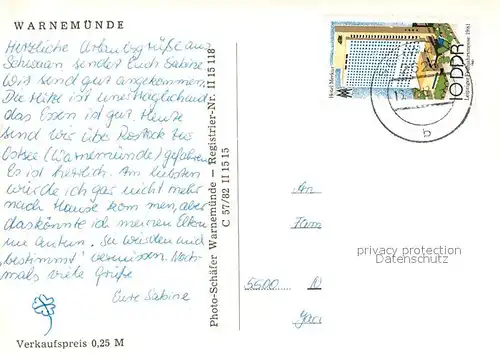 WARNEMÜNDE
Herzliche Urlaubsgrüße aus
Schwaan sendet Euch Sabine
Wir sind gut angekommen.
Die Hitze ist unerträglich und
das Essen ist gut. Heute
sind wir über Rostock zur
Ostsee (Warnemünde) gefahren
Es ist herrlich. Am liebsten
würde ich gar nicht mehr
nach Hause kommen, aber
das könnte ich meinen Eltern
nie antun. Sie würden mich
"bestimmt" vermissen. Noch-
mals viele Grüße
Eure Sabine
Verkaufspreis 0,25 M
Photo-Schäfer Warnemünde – Registrier-Nr. II 15 118
C 57/82 II 15 15
Hotel Merkur
10 DDR
1981
An
Fam
5500
privacy protection
DanskMedieCenter